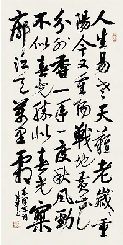 人生易老天難老歲歲重
陽今又重陽戰地黃花
分外香一年一度秋風勁
不似春光勝似春光寥
廓江天萬里霜